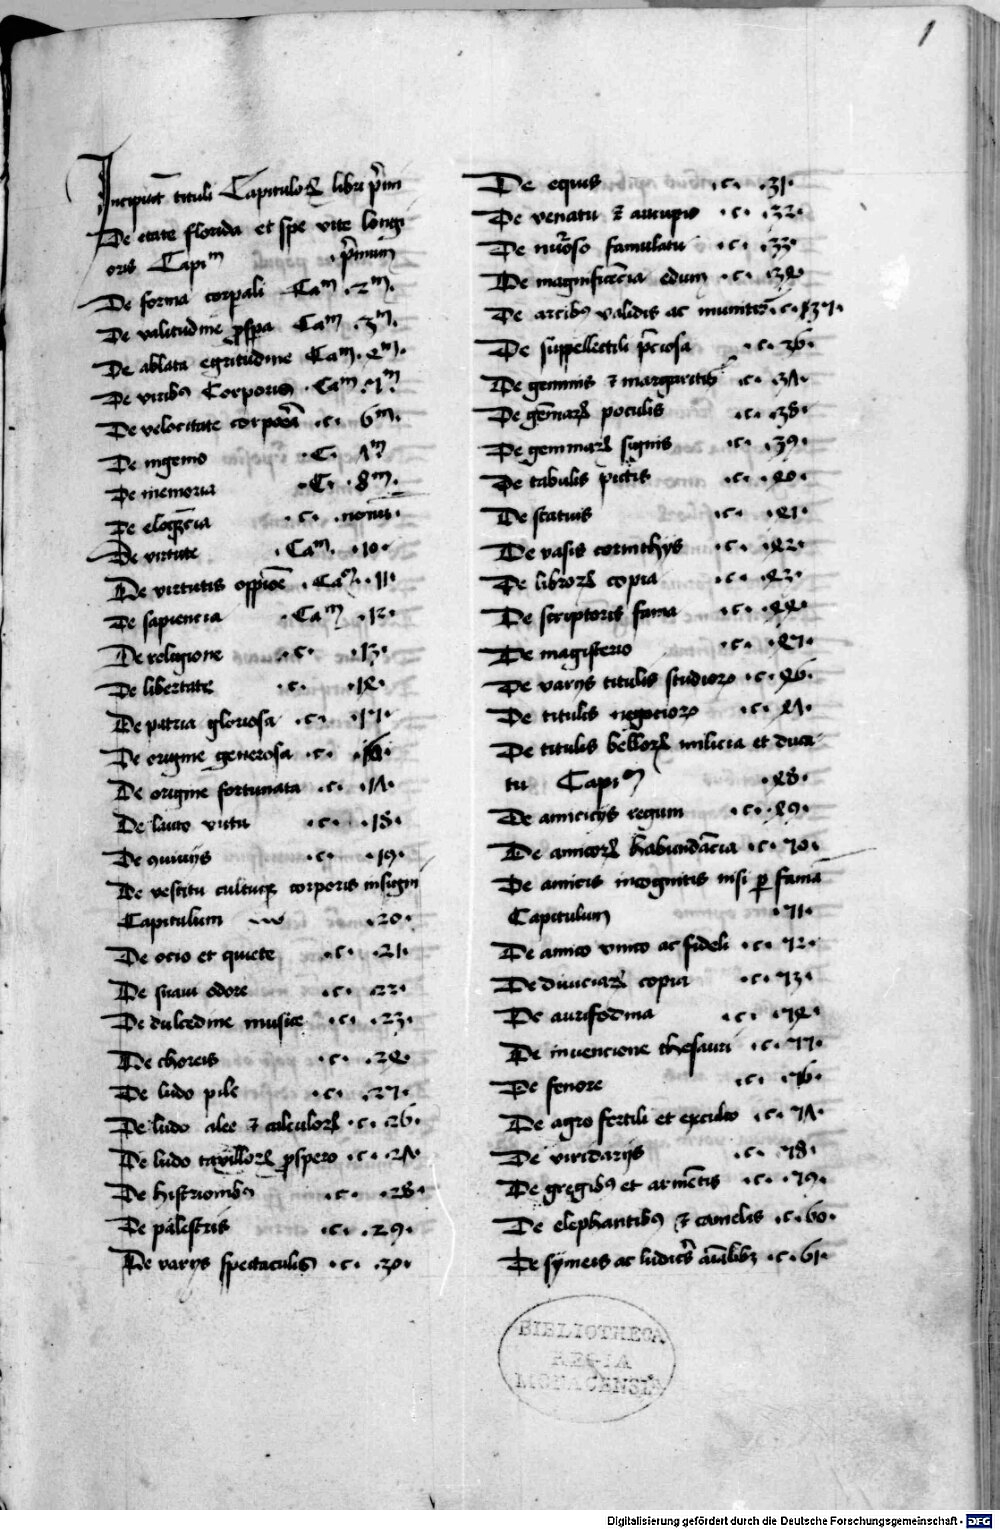 1
Incipiūt tituli Capitulorꝝ libri pͥmi
De etate florida et spe vite longi
oris Capiᵐ · pͥmum
De forma corpali Caᵐ · 2ᵐ ·
De valitudine ꝓspa Caᵐ · 3ᵐ ·
De ablata egritudine Caᵐ · 4ᵐ ·
De viribꝰ Corporis · Caᵐ · 5ᵐ
De velocitate corporea · c · 6ᵐ ·
De ingenio · C · 7ᵐ
De memoria · C · 8ᵐ ·
De eloqncia · c · nonū ·
De virtute · Caᵐ · 10 ·
De virtutis oppioē · Caᵐ · 11 ·
De sapiencia · Caᵐ · 12 ·
De religione · c · 13 ·
De libertate · c · 14 ·
De patria gloriosa · c · 15 ·
De origine generosa · c · 16 ·
De origine fortunata · c · 17 ·
De lauto victu · c · 18 ·
De ꝯviviis · c · 19 ·
De vestitu cultuqꝫ corporis insigni
Capitulum · 20 ·
De ocio et quiete · c · 21 ·
De suaui odore · c · 22 ·
De dulcedine musice · c · 23 ·
De choreis · c · 24 ·
De ludo pile · c · 25 ·
De ludo alee ⁊ calculorꝝ · c · 26 ·
De ludo taxillorꝝ ꝓspero · c · 27 ·
De histrionibꝰ · c · 28 ·
De palestris · c · 29 ·
De variis spectaculis · c · 30 ·
De equis · c · 31 ·
De venatu ⁊ aucupio · c · 32 ·
De nūoso famulatu · c · 33 ·
De magnificēcia edium · c · 34 ·
De arcibꝰ validis ac munitis · c · 35 ·
De suppellectili pͥciosa · c · 36 ·
De gemmis ⁊ margaritis · c · 37 ·
De gēmarꝝ poculis · c · 38 ·
De gemmarꝝ signis · c · 39 ·
De tabulis pictis · c · 40 ·
De statuis · c · 41 ·
De vasis corinthijs · c · 42 ·
De librorꝝ copia · c · 43 ·
De scriptoris fama · c · 44 ·
De magisterio · c · 45 ·
De varijs titulis studiorꝝ · c · 46 ·
De titulis negociorꝝ · c · 47 ·
De titulis bellorꝝ milicia et duca
tu Capiᵐ · 48 ·
De amicicijs regum · c · 49 ·
De amicorꝝ habundācia · c · 50 ·
De amicis incognitis nisi ꝑ famā
Capitulum · 51 ·
De amico vnico ac fideli · c · 52 ·
De diuiciarꝝ copia · c · 53 ·
De aurifodina · c · 54 ·
De invencione thesauri · c · 55 ·
De fenore · c · 56 ·
De agro fertili et exculto · c · 57 ·
De viridarijs · c · 58 ·
De gregibꝰ et armētis · c · 59 ·
De elephantibꝰ ⁊ camelis · c · 60 ·
De symeis ac ludicͥs aīalibꝫ · c · 61 ·
BIBLIOTHECA
REGIA
MONACENSIS
Digitalisierung gefördert durch die Deutsche Forschungsgemeinschaft - DFG